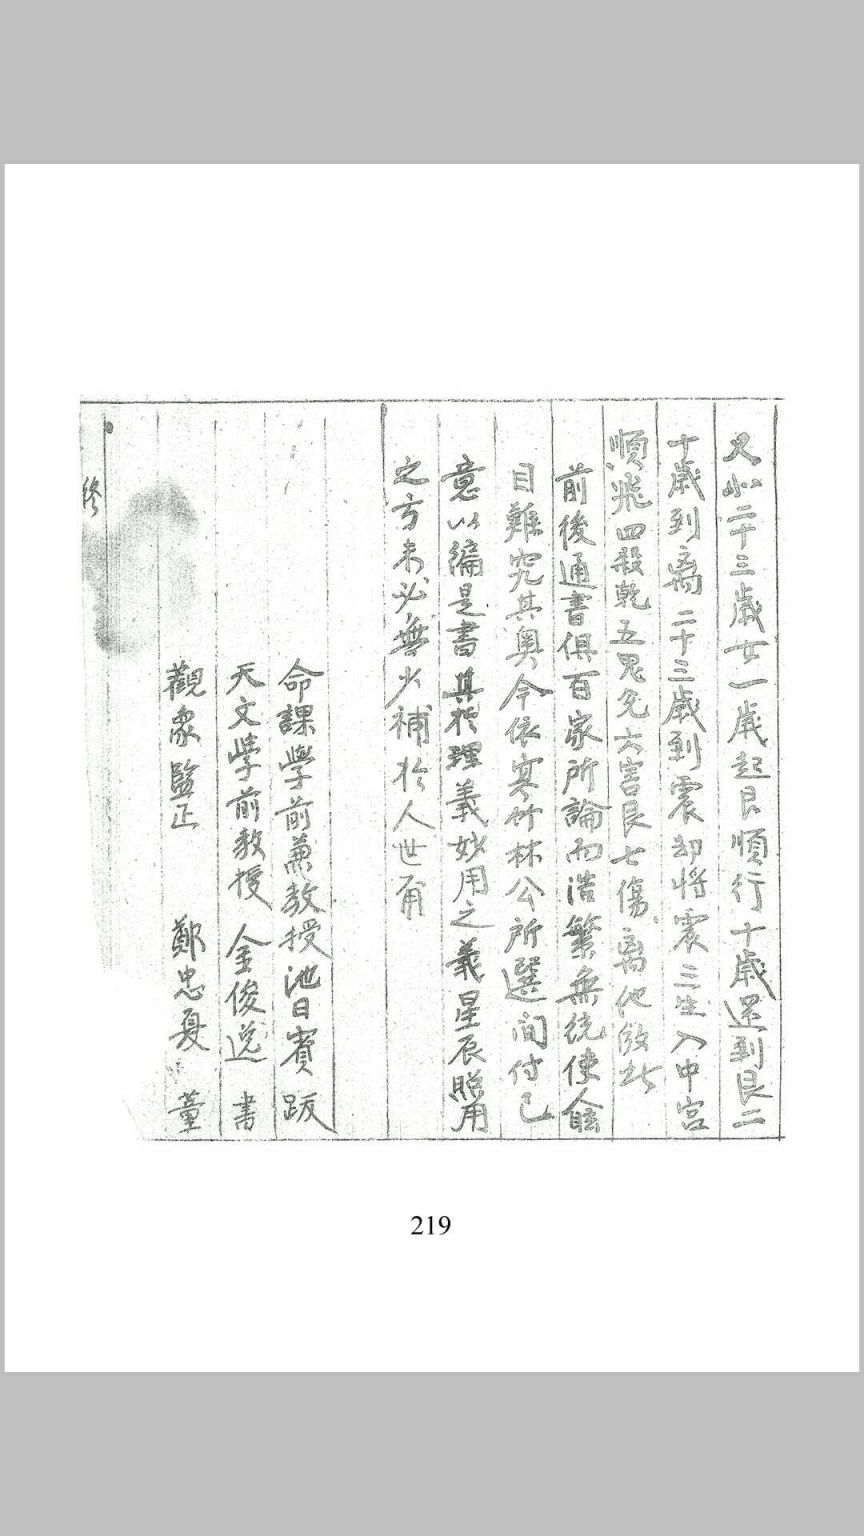 又如二十三歲女一歲起艮順行十歲還到艮二
十歲到离二十三歲到震却将震三生入中宮
順飛四殺乾五鬼兌六害艮七傷离他倣此
前後通書俱百家所論而浩繁無統使人眩
目難究其奧今依寒竹林公所選間付己
意以編是書其於理義妙用之義星辰照用
之方未必無少補於人世有
命課學前兼教授池日賓 跋
天文學前教授 金俊逸 書
觀象監正 鄭忠夏 董
終
219